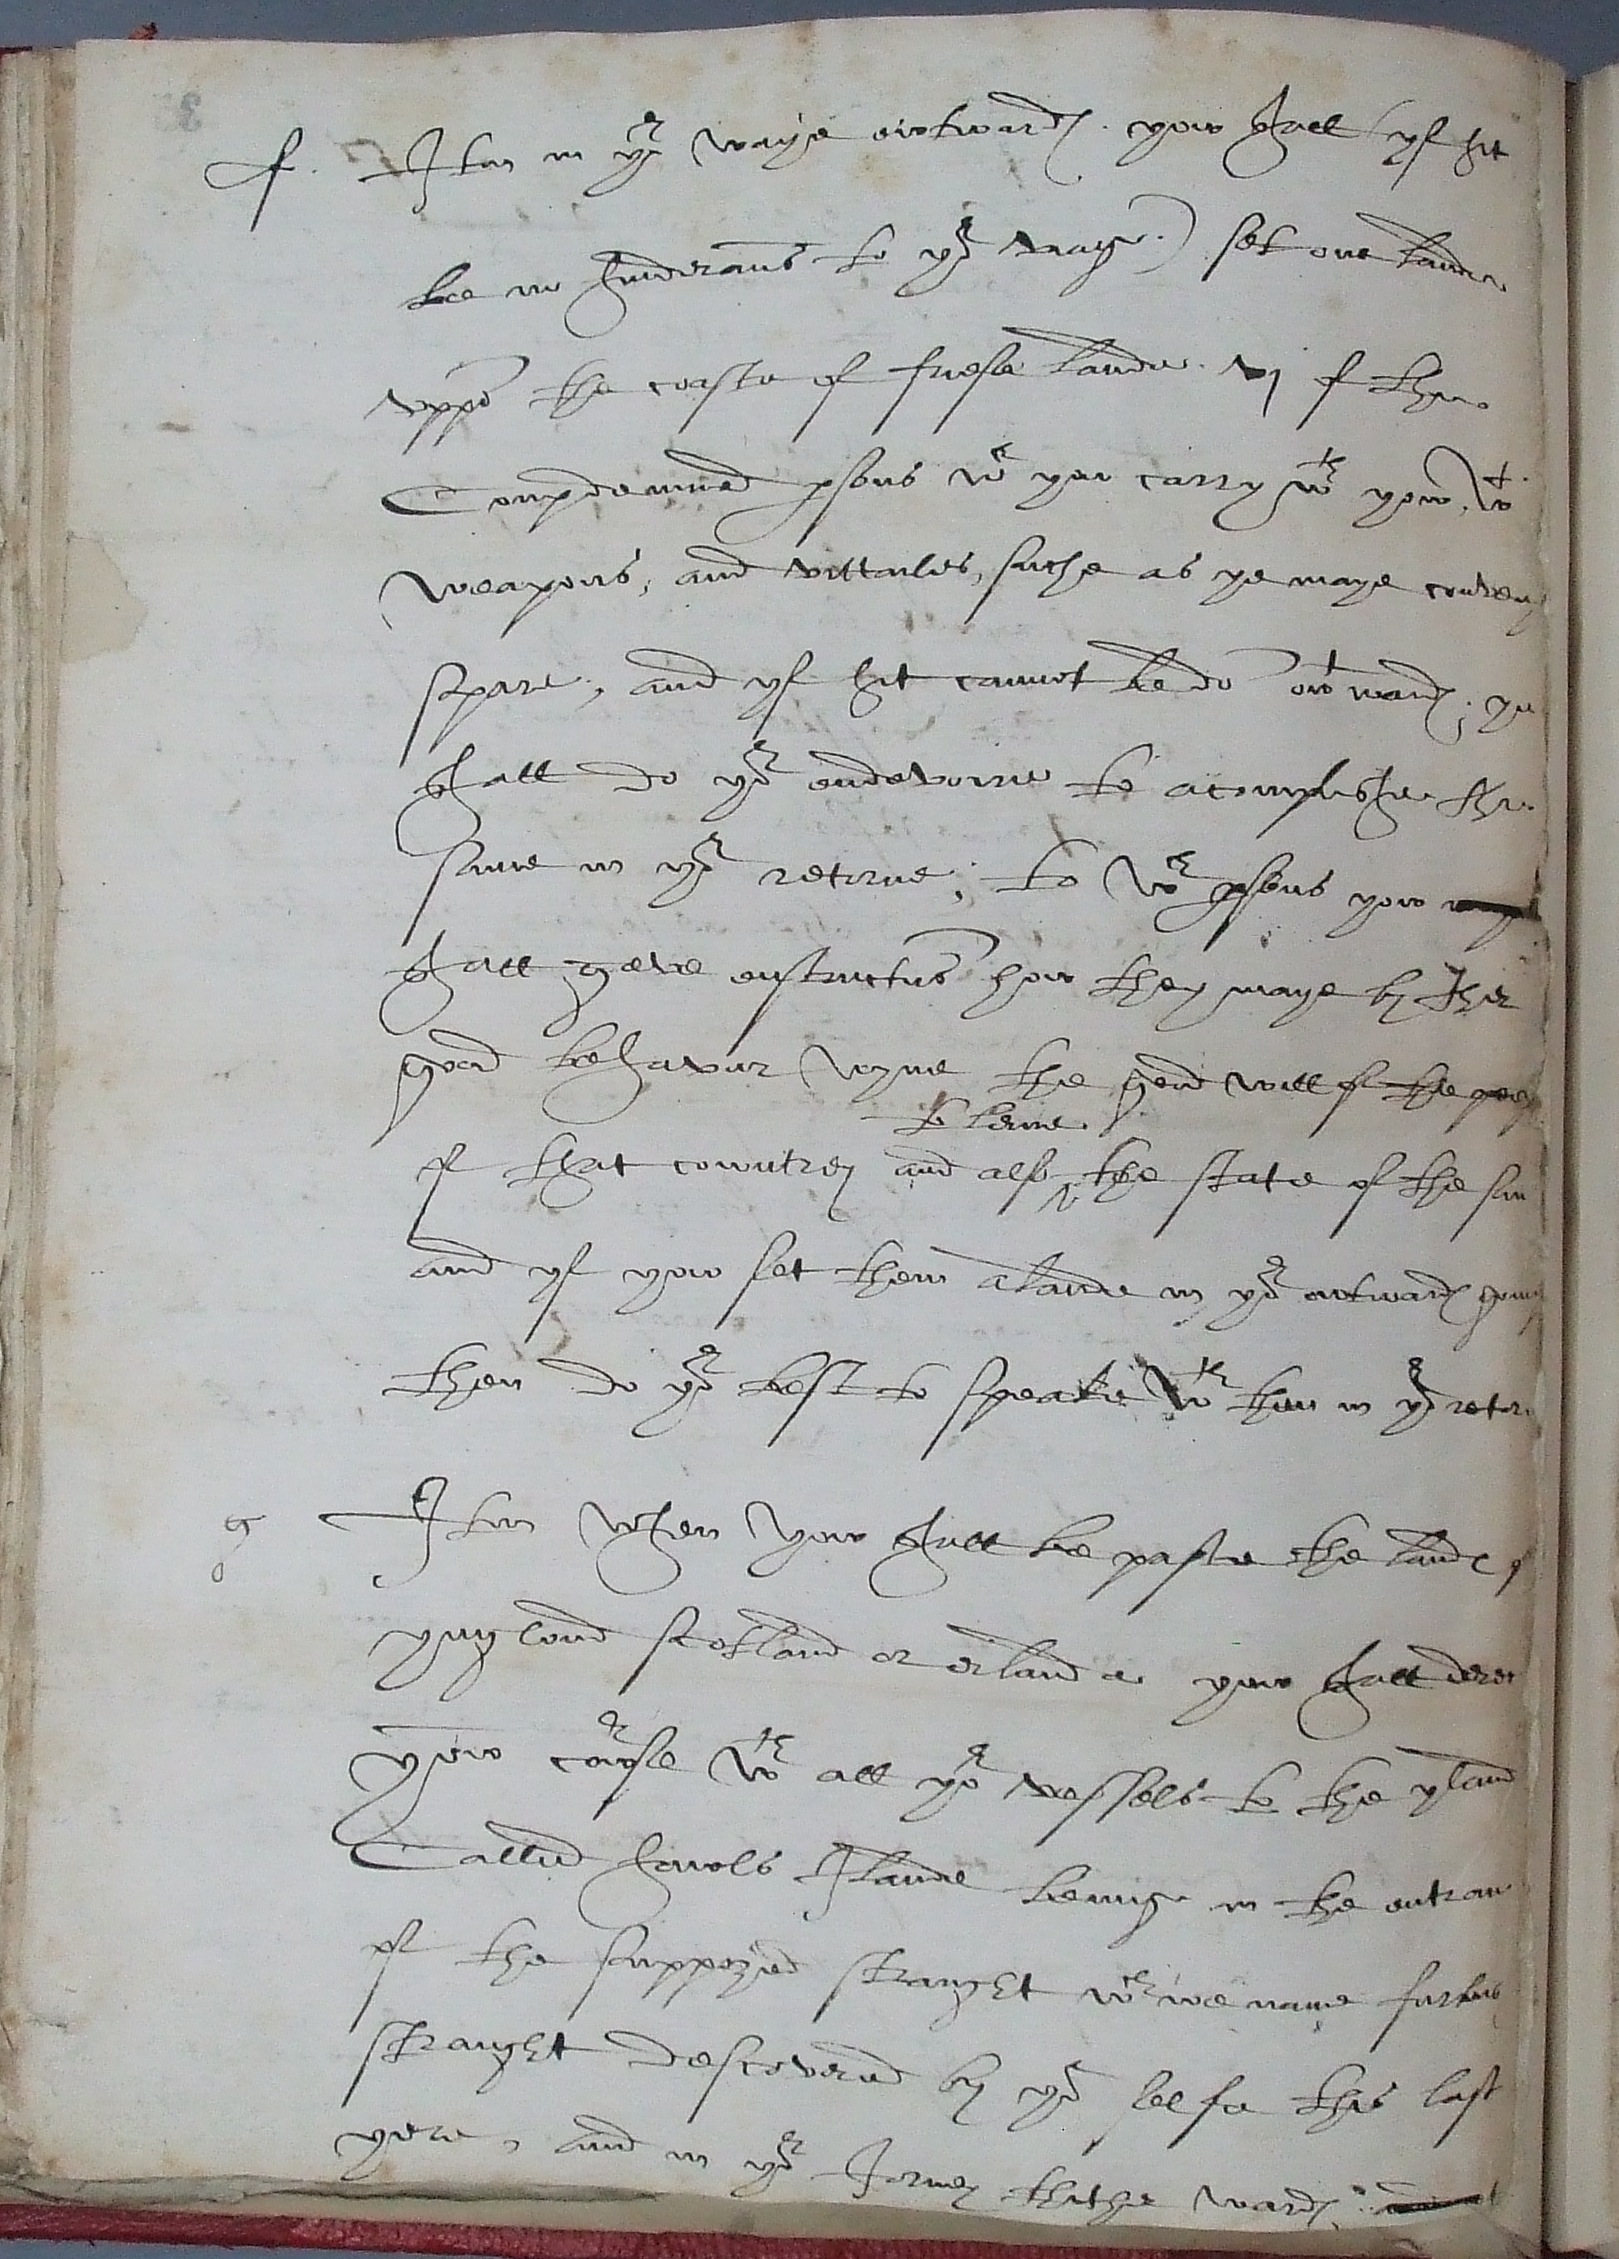 f. Itm in yor waye owtwardes. yow shall (yf hit
be no hinderans to yor viage.) set one lande
vppon the coaste of friese lande. vj of the
Condemned psons wch yow carry wth yow. wt
weapons, and vittailes, suche as ye maye conven
spare, and yf hit cannot be do owtwardes, ye
shall do yor endevoure to acomplishe the
same in yor retorne, to wch psons yow
shall geve enstructns how they maye by ther
good behavour wyne the good will of the peo
to lerne
of that cowntrey and also the state of the sa
and yf yow set them alande in yor owtwardes going
then do yor best to speake wth them in yor retor
g Itm when yow shall be paste the landes of
yngland scotland or erlande yow shall derect
yowr course wth all yor vessels to the yland
Called hawls Ilande beinge in the entran
of the suppozed straight wch we name furbus
straight descoverid by yor selfe this last
yere, and in yor Jorney thithe wardes